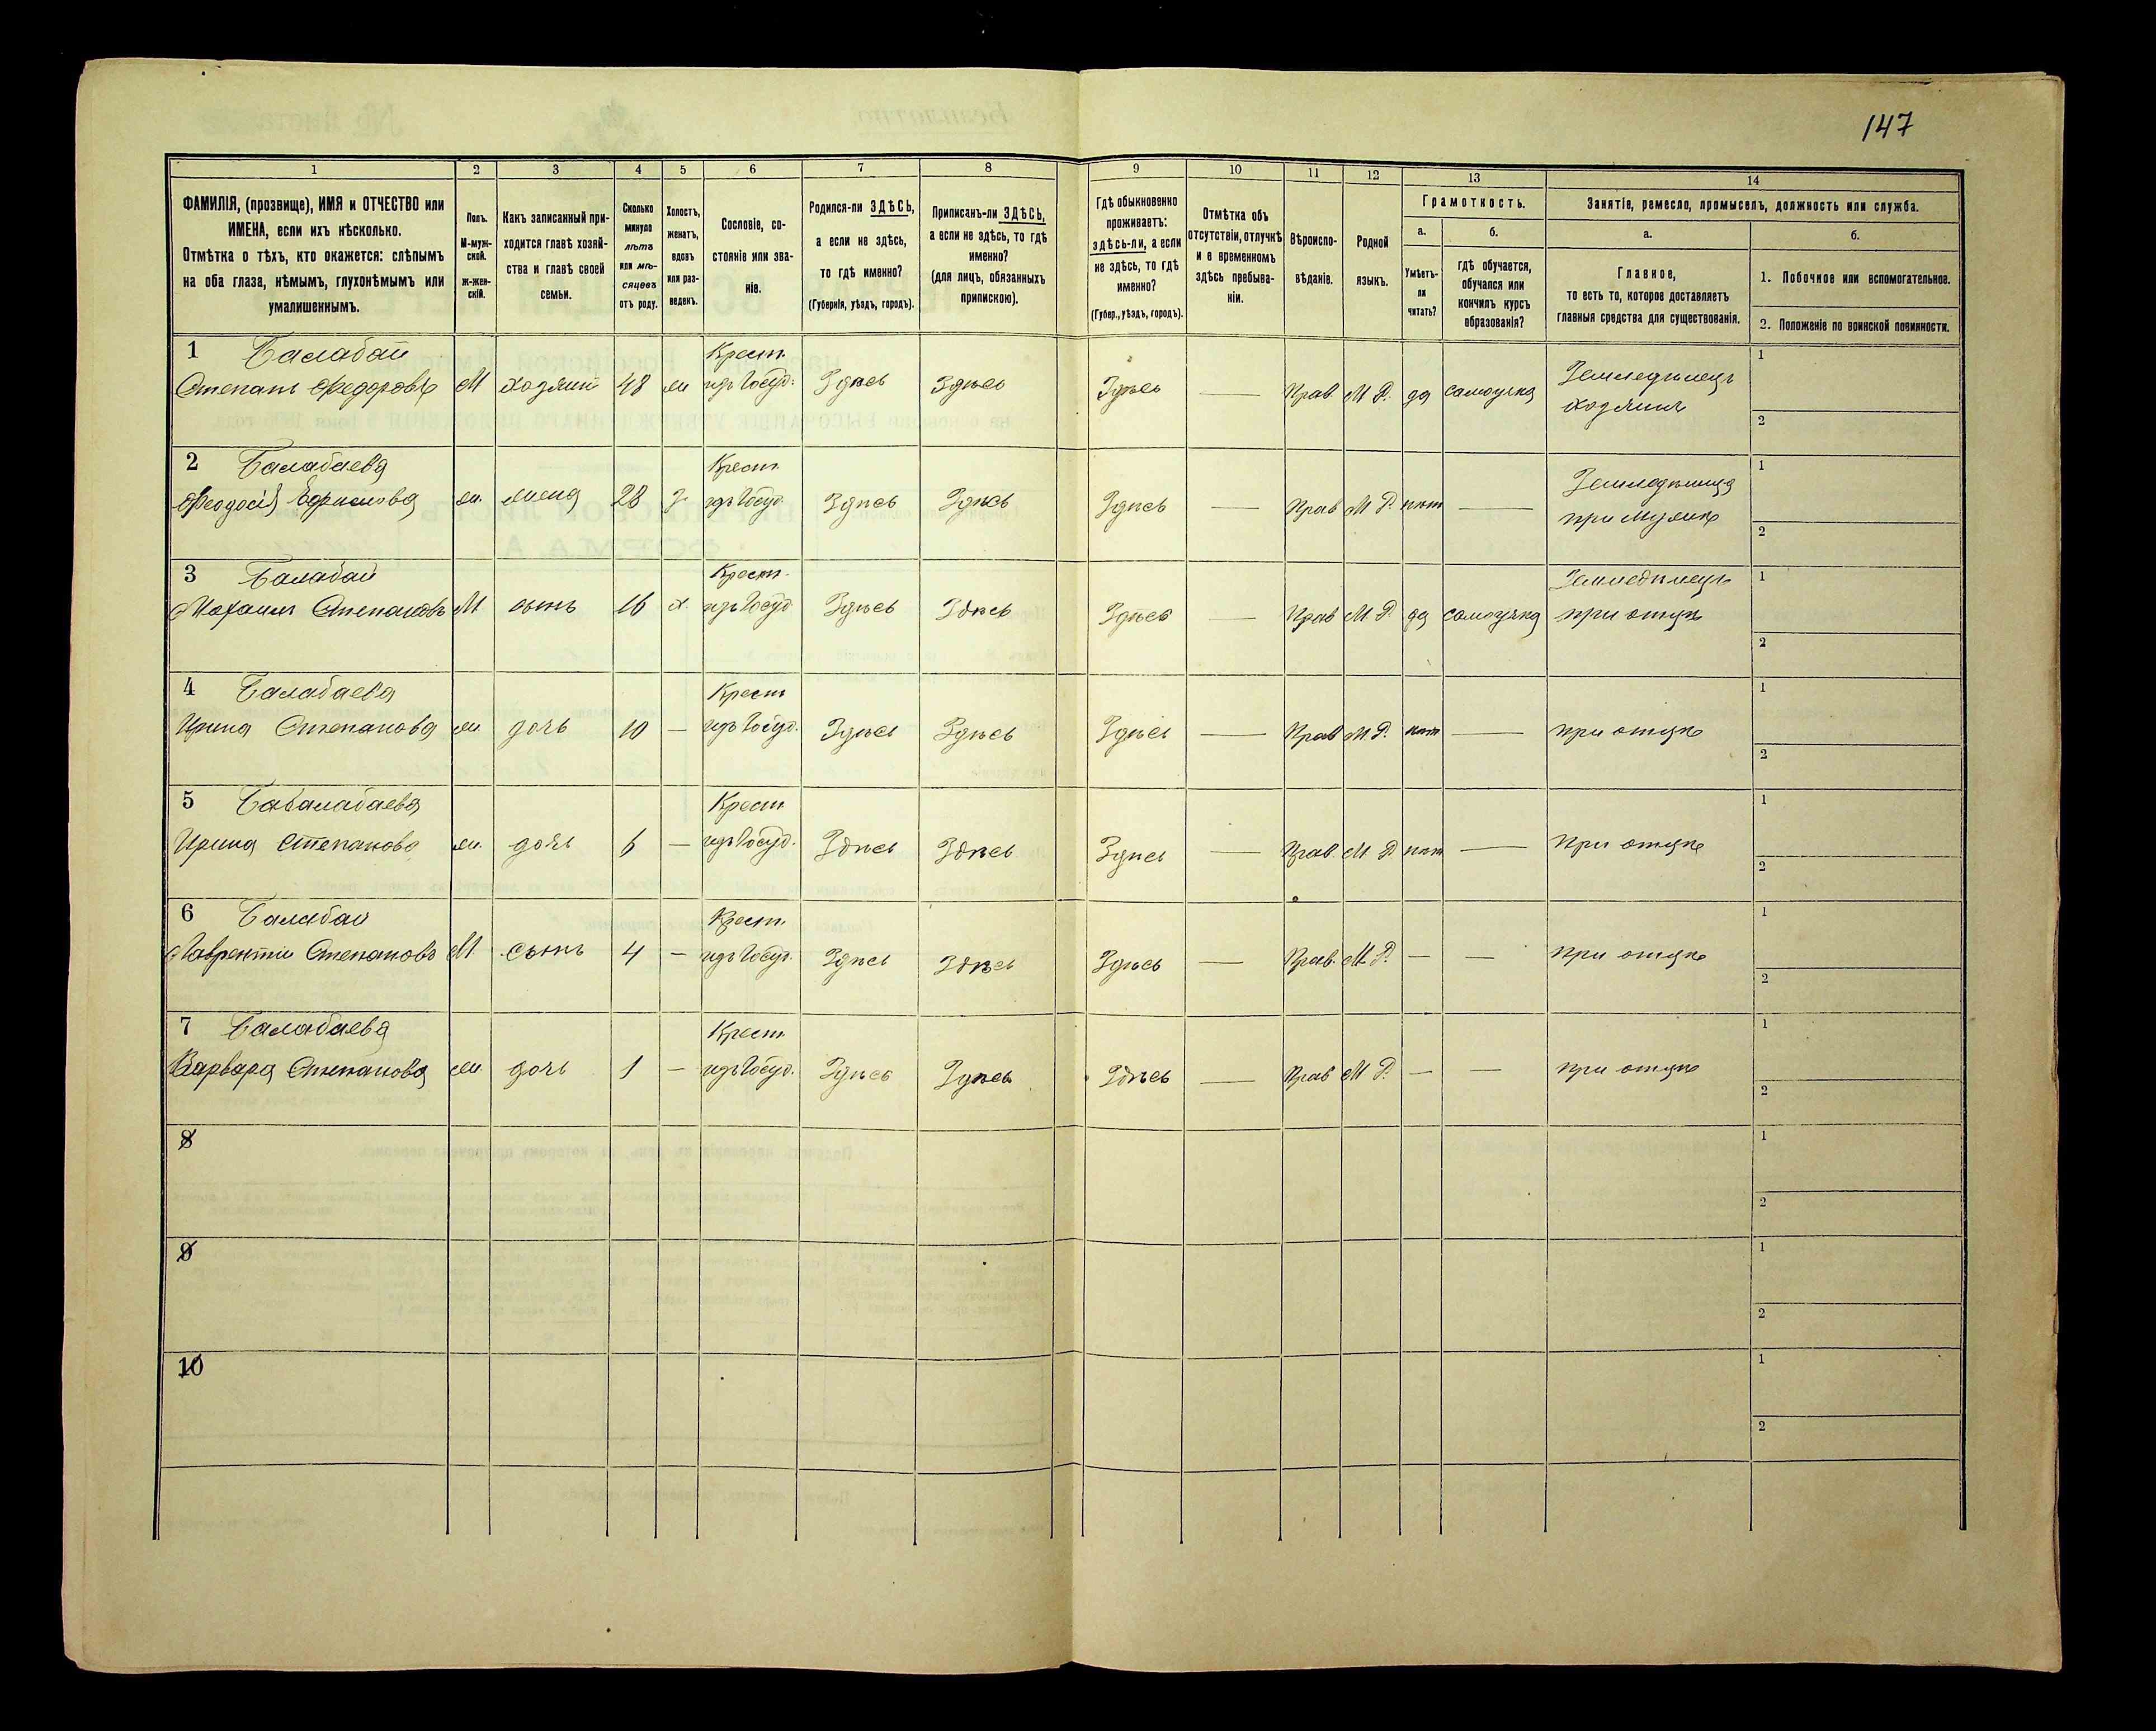 147
1 2 3 4 5 6 7 8 9 10 11 12 13 14
ФАМИЛІЯ, (прозвище), ИМЯ и ОТЧЕСТВО или
ИМЕНА, если ихъ нѣсколько.
Отмѣтка о тѣхъ, кто окажется: слѣпымъ
на оба глаза, нѣмымъ, глухонѣмымъ или
умалишеннымъ.
Полъ.
М-муж-
ской.
Ж-жен-
скій.
Какъ записанный при-
ходится главѣ хозяй-
ства и главѣ своей
семьи.
Сколько
минуло
лѣтъ
или мѣ-
сяцевъ
отъ роду.
Холостъ,
женатъ,
вдовъ
или раз-
веденъ.
Сословіе, со-
стояніе или зва-
ніе.
Родился-ли ЗДѢСЬ,
а если не здѣсь,
то гдѣ именно?
(Губернія, уѣздъ, городъ).
Приписанъ-ли ЗДѢСЬ,
а если не здѣсь, то гдѣ
именно?
(для лицъ, обязанныхъ
припискою).
Гдѣ обыкновенно
проживаетъ:
здѣсь-ли, а если
не здѣсь, то гдѣ
именно?
(Губер., уѣздъ, городъ).
Отмѣтка объ
отсутствіи, отлучкѣ
и о временномъ
здѣсь пребыва-
ніи.
Вѣроиспо-
вѣданіе.
Родной
языкъ.
Грамотность.
а. б.
Умѣетъ-
ли
читать?
гдѣ обучается,
обучался или
кончилъ курсъ
образованія?
Занятіе, ремесло, промыселъ, должность или служба.
а. б.
Главное,
то есть то, которое доставляетъ
главныя средства для существованія.
1. Побочное или вспомогательное.
2. Положеніе по воинской повинности.
1 Балабай Крест. 1
Степанъ Федоровъ М хозяин 48 ж изъ Госуд. Здѣсь Здѣсь Здѣсь — Прав. М Р. да самоучка Земледѣлецъ
хозяинъ
2
2 Балабаева Крест. 1
Феодосія ж. жена 28 з. изъ Госуд. Здѣсь Здѣсь Здѣсь — Прав М Р. нѣт — Земледѣлица
при мужѣ
2
3 Балабай Крест. Земледѣлецъ 1
Михаилъ Степановъ М сынъ 16 х. изъ Госуд Здѣсь Здѣсь Здѣсь — Прав М. Р. да самоучка при отцѣ
2
4 Балабаева Крест 1
Ирина Степанова ж дочь 10 — изъ Госуд. Здѣсь Здѣсь Здѣсь — Прав М. Р. нѣт — при отцѣ
2
5 Бабалабаева Крест 1
Ирина Степанова ж. дочь 6 — изъ Госуд. Здѣсь Здѣсь Здѣсь — Прав М Р нѣт — при отцѣ
2
6 Балабай Крест. 1
Лаврентій Степановъ М. сынъ 4 — изъ Госуд. Здѣсь Здѣсь Здѣсь — Прав. М. Р. — — при отцѣ
2
7 Балабаева Крест. 1
Варвара Степанова ж дочь 1 — изъ Госуд. Здѣсь Здѣсь Здѣсь — Прав М Р. — — при отцѣ
2
8 1
2
9 1
2
10 1
2